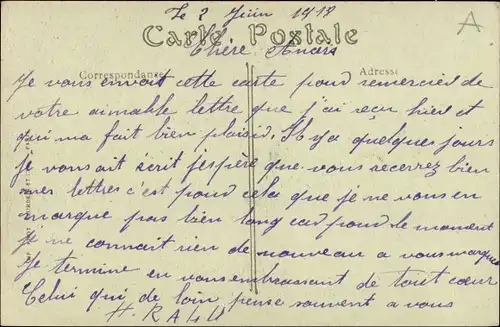 Le 2 Juin 1918
Carte Postale
Chère
Correspondance Adresse
Je vous envoit cette carte pour remercier de
votre aimable lettre que j'ai reçu hier et
qui ma fait bien plaisir, Il y a quelques jours
je vous ait écrit j'espère que vous recevrez bien
mes lettres c'est pour cela que je ne vous en
marque pas bien long car pour le moment
je ne connait rien de nouveau a vous marquer
Je termine en vous embrassant de tout cœur
Celui qui de loin pense souvent a vous
A